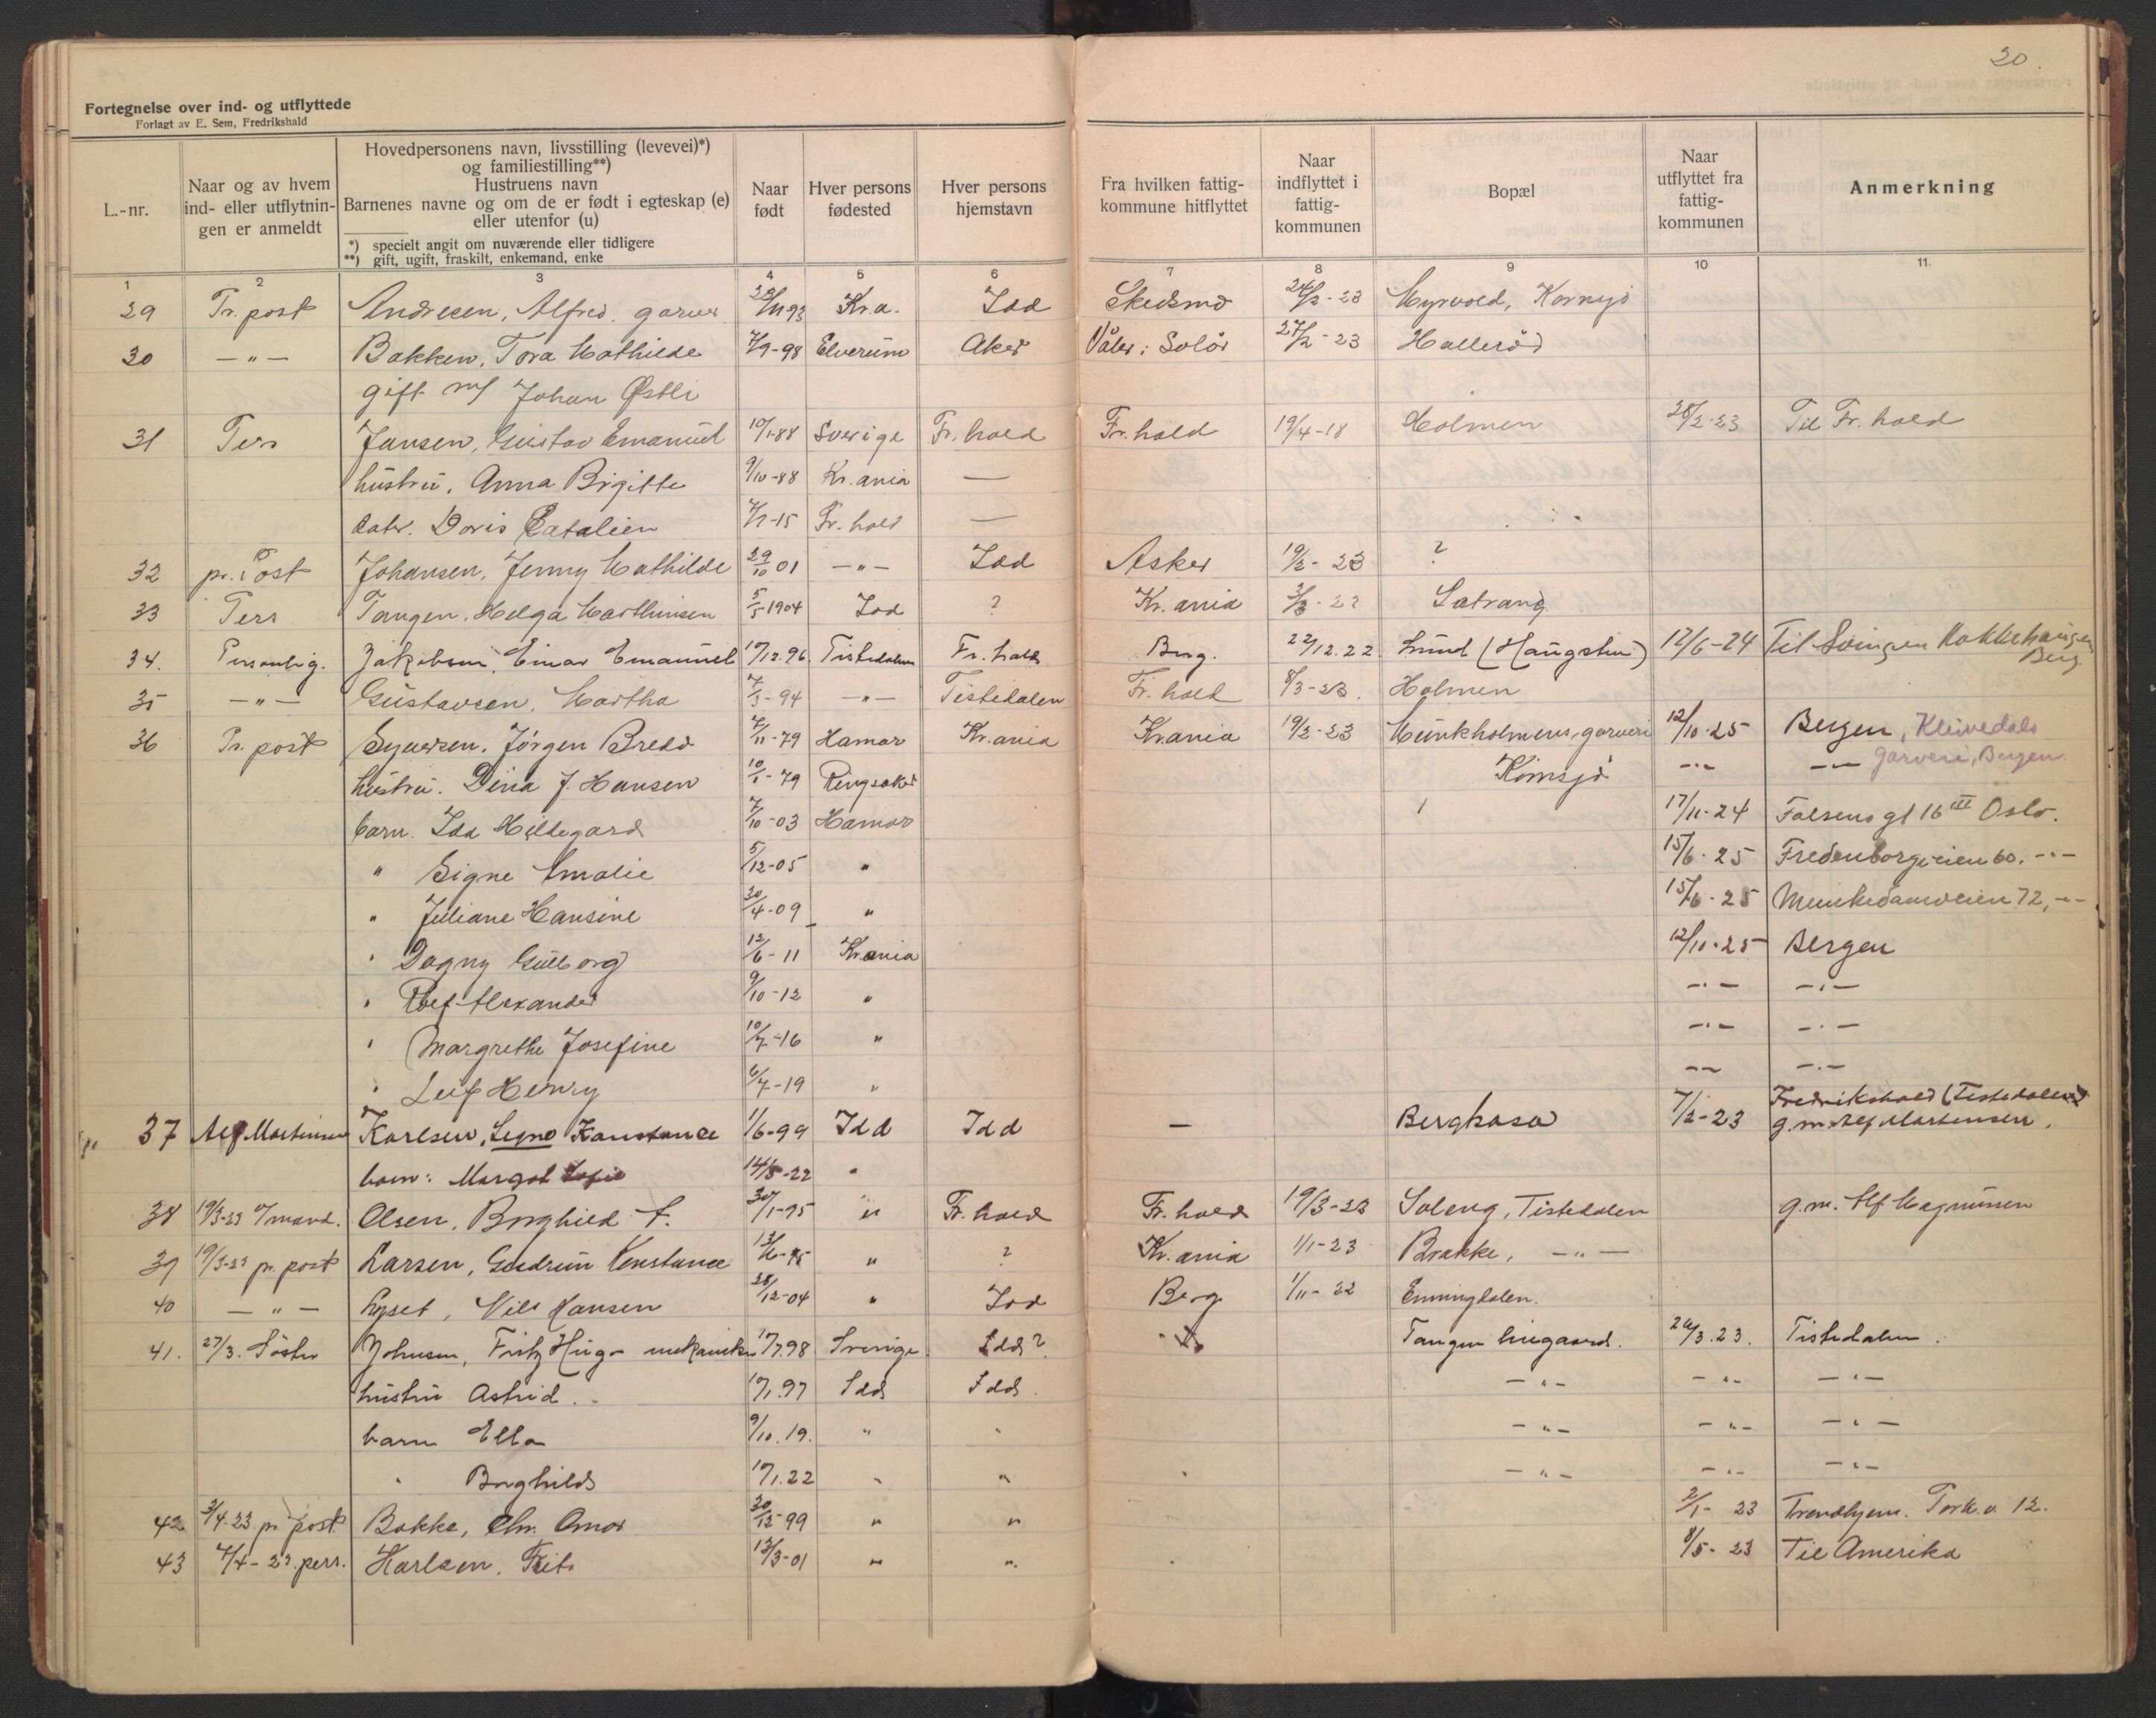 20.
Fortegnelse over ind- og utflyttede
Forlagt av E. Sem, Fredrikshald
L.-nr. | Naar og av hvem ind- eller utflytnin-gen er anmeldt | Hovedpersonens navn, livsstilling (levevei)*) og familiestilling**) Hustruens navn Barnenes navne og om de er født i egteskap (e) eller utenfor (u) *) specielt angit om nuværende eller tidligere **) gift, ugift, fraskilt, enkemand, enke | Naar født | Hver persons fødested | Hver persons hjemstavn | Fra hvilken fattig-kommune hitflyttet | Naar indflyttet i fattig-kommunen | Bopæl | Naar utflyttet fra fattig-kommunen | Anmerkning
1 2 3 4 5 6 7 8 9 10 11.
29 Pr. post Andresen, Alfred. garver Kr.a. Idd Skedsmo 24/2-23 Myrvold, Kornsjø
30 —"— Bakken, Tora Mathilde 7/9-98 Elverum Aker Våler i Solør 27/2-23 Hallerød
gift m/ Johan Østli
31 Pers Jansen, Gustav Emanuel 10/1-88 Sverige Fr.hald Fr.hald 19/4-18 Holmen 28/2-23 Til Fr.hald
hustru, Anna Birgitte 9/10-88 Kr.ania —
datr. Doris Catalien 7/7-15 Fr.hald —
32 pr. Post Johansen, Jenny Mathilde 29/10 01 —"— Idd Asker 19/2-23 ?
33 Pers Tangen, Helga Marthinsen 5/5 1904 Idd ? Kr.ania Satrang
34. Personlig. Jakobsen, Einar Emanuel 17/12.96. Tistedalen Fr.hald Berg. 22/12.22. Lund (Haugstun) 12/6-24 Til Svingen Kakkehaugen Berg.
35 —"— Gustavsen, Martha 7/3-94 —"— Tistedalen Fr.hald 8/3-23. Holmen
36 Pr. post Syversen, Jørgen Bredo 7/11-79 Hamar Kr.ania Kr.ania 19/2-23 Munkholmens garveri 12/10-25 Bergen, Kleivedals
hustru. Dina J. Hansen 10/1-79 Ringsaker Kornsjø —"— —"— garveri, Bergen.
barn. Ida Hildegard 7/10-03 Hamar 17/11-24 Falsens gt 16 III Oslo.
" Signe Amalie 5/12-05 " 15/6-25 Fredenborgveien 60. —"—
" Juliane Hansine 30/4-09 " 15/6-25 Munkedamsveien 72, —"—
" Dagny Gulborg 12/6-11 Kr.ania 12/10-25 Bergen
" Rolf Alexander 9/10-12 " —"— —"—
" Margrethe Josefine 10/7-16 " —"— —"—
" Leif Henry 6/7-19 " —"— —"—
37 Alf Martinsen Karlsen, Signe Konstance 1/6-99 Idd Idd — Berghasa 7/2-23 Fredrikshald (Tistedalen) g.m. Alf Martensen.
barn: Margot Sofie 14/5-22 "
38 19/3-23 Olsen, Borghild 30/1-95 " Fr.hald Fr.hald 19/3-23 Soleng, Tistedalen g.m. Alf Magnussen
39 19/3-23 pr. post Larsen, Gudrun Konstance " ? Kr.ania 1/1-23 Brakke, —"—
40 —"— Lyset, Nils Hansen 28/12-04 " Idd Berg 1/11-22 Enningdalen.
41. 27/3. Søster Johnsen, Fritz Hugo mekaniker 17/7.98 Sverige Idd? Tangen lingaard. 26/3.23. Tistedalen.
hustru Astrid. 17/1.97 Idd Idd. —"— —"— —"—
barn Ella 9/10.19. " " —"— —"— —"—
" Borghild 17/1.22 " " —"— —"— —"—
42 3/4-23 pr. post Bakke, Chr. Amor 30/12-99 " " 2/1-23 Trondhjem. 12.
43 7/4-23 pers. Karlsen, Frits 13/3-01 " " 8/5-23 Til Amerika